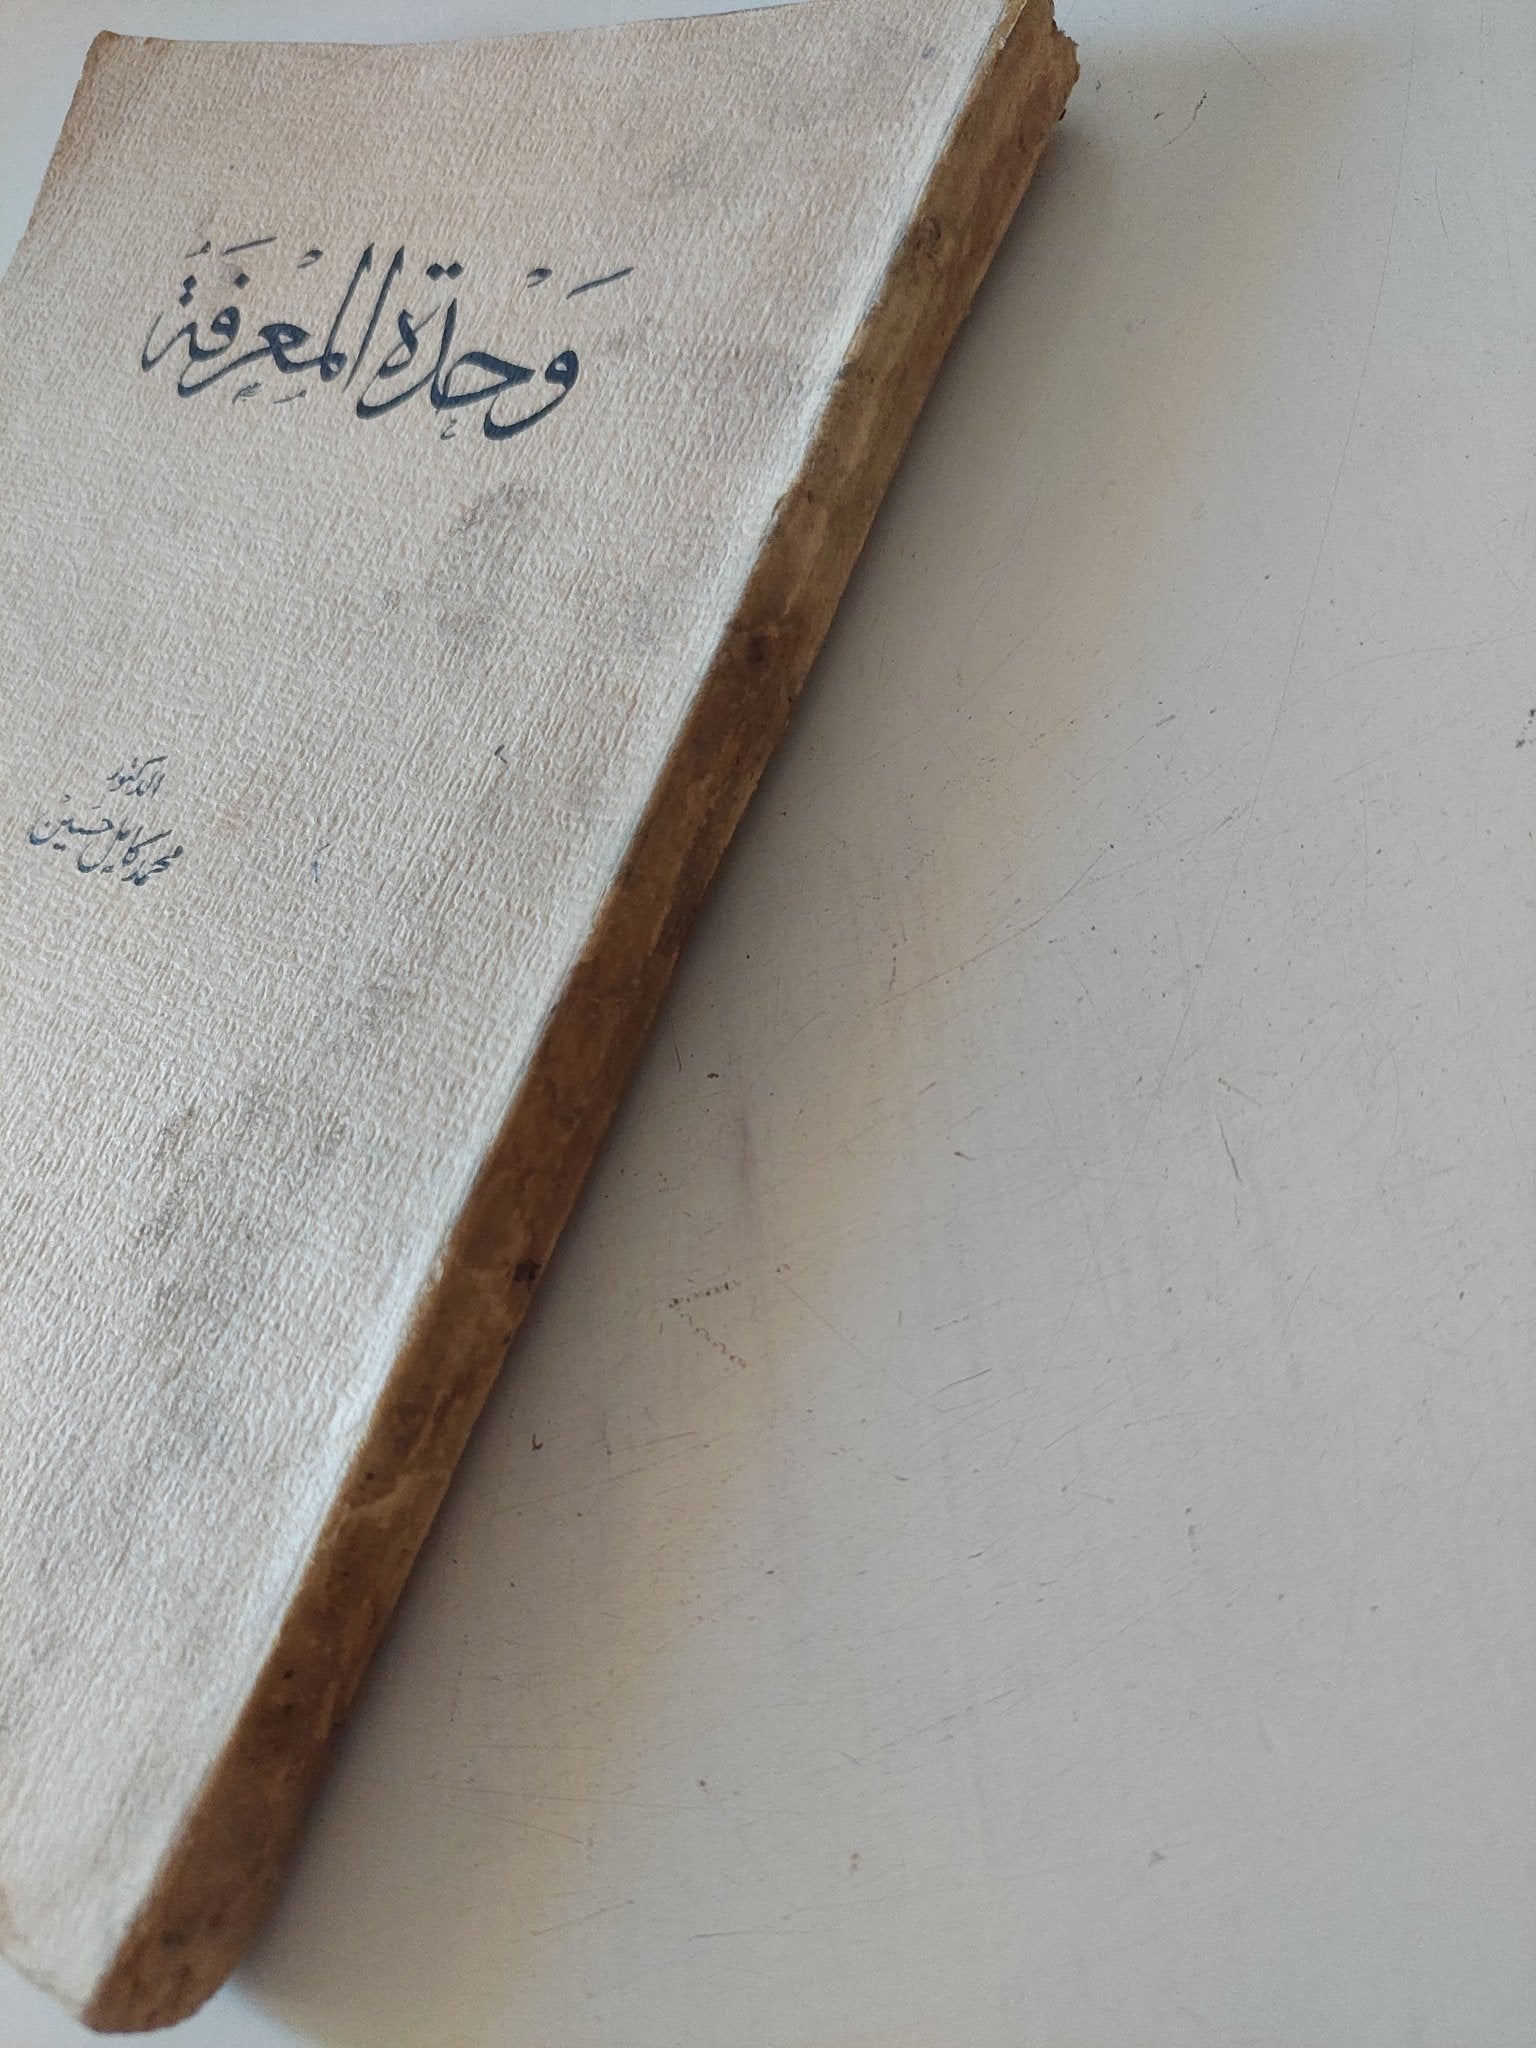 وَحْدَة المَعْرِفَةُ
الدكتور
محمد كامل حسين